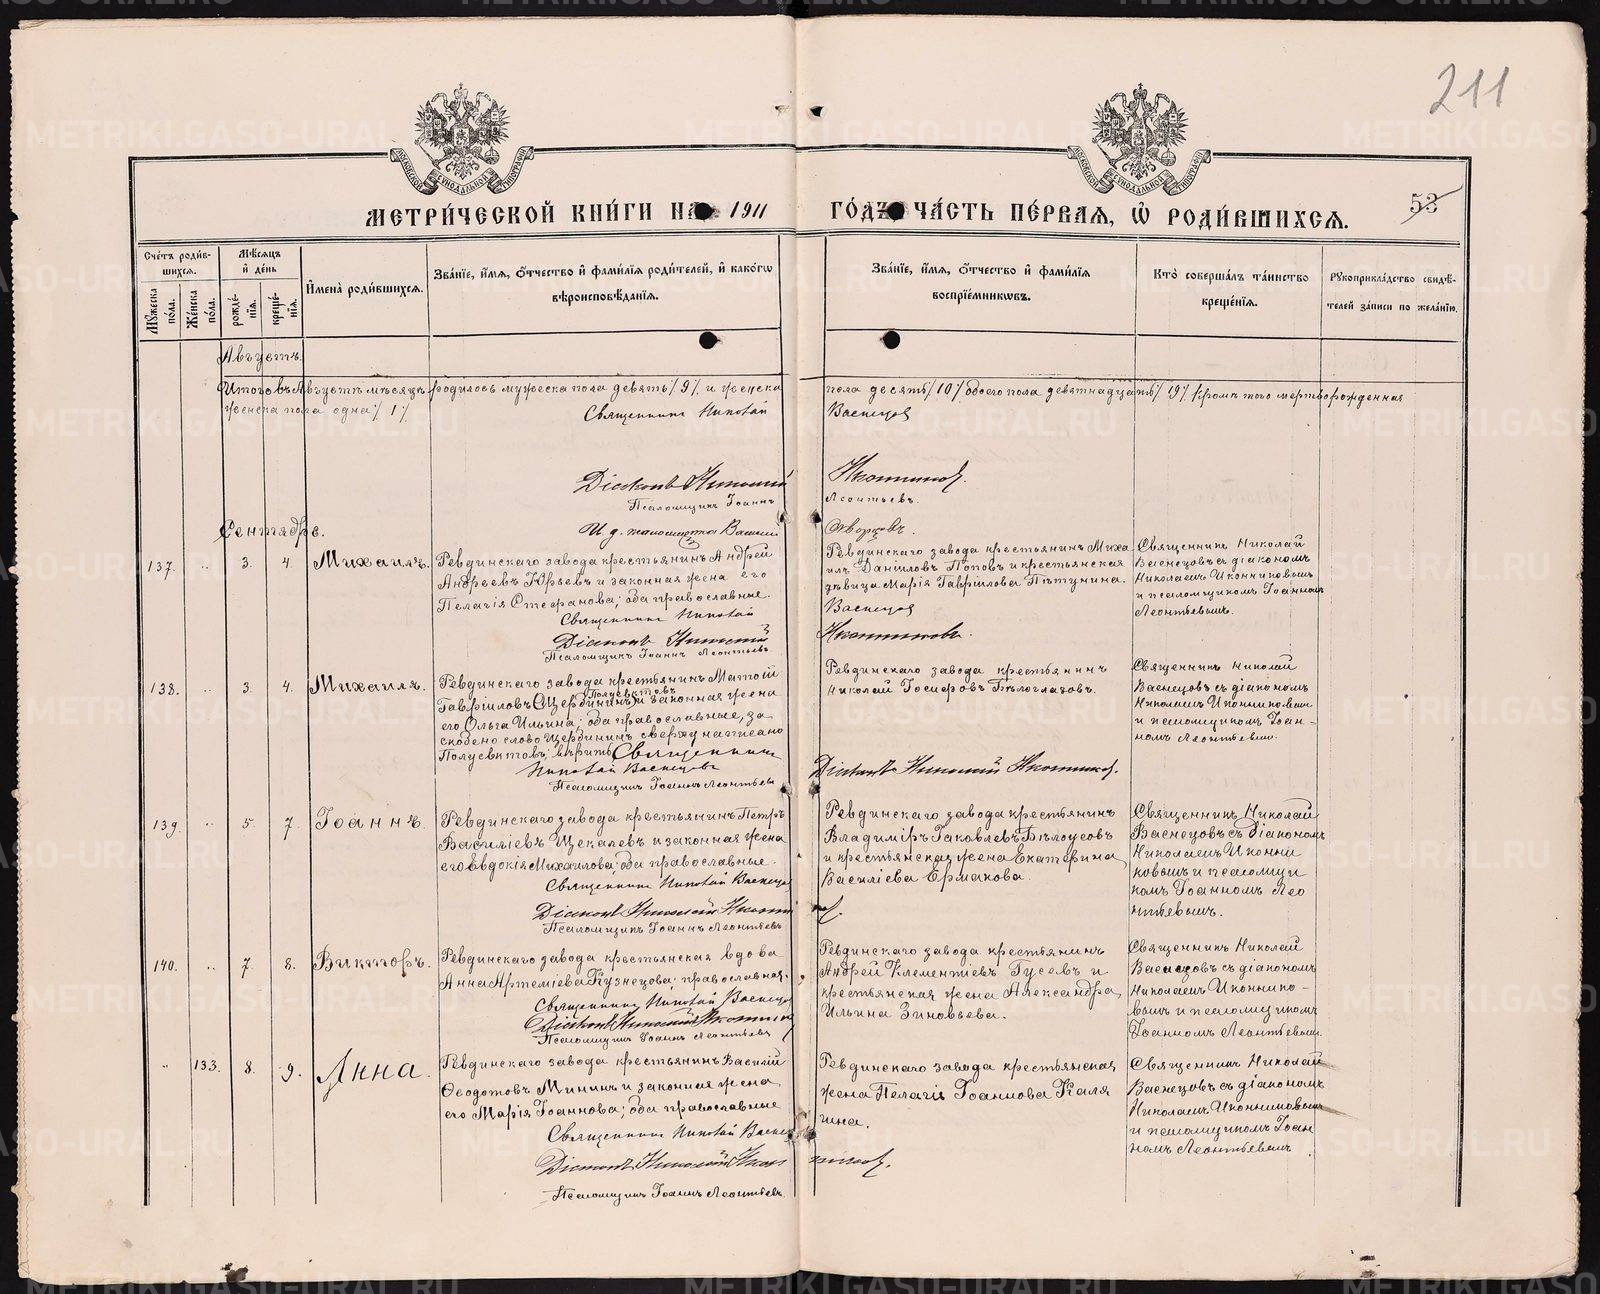 211
МЕТРИ́ЧЕСКОЙ КНИ́ГИ НА 1911
ГО́ДЪ ЧА́СТЬ ПЕ́РВАЯ, Ѽ РОДИ́ВШИХСЯ.
53
Сче́тъ роди́в-
шихся.
Мѣ́сяцъ
и҆ де́нь
Му́жеска
по́ла.
Же́нска
по́ла.
рожде́-
нїя.
креще́-
нїя.
И҆мена̀ роди́вшихся.
Зва́нїе, и҆́мя, ѻ҆́тчество и҆ фами́лїя роди́телей, и҆ како́гѡ
вѣроисповѣ́данїя.
Зва́нїе, и҆́мя, ѻ҆́тчество и҆ фами́лїя
воспрїе́мникѡвъ.
Кто̀ соверша́лъ та́инство
креще́нїя.
Рукоприкла́дство свидѣ́-
телей за́писи по жела́нїю.
Августъ.
Итого въ Августѣ мѣсяцѣ родилось мужеска пола девять /9/ и женска
пола десять /10/ обоего пола девятнадцать /19/ кромѣ того мертворожденная
женска пола одна /1/
Священникъ Николай
Васнецов
Діаконъ Николай
Иконников.
Псаломщикъ Іоаннъ
Леонтьевъ.
Сентябрь.
И. д. псаломщика Василій
137.
"
3.
4.
Михаилъ.
Ревдинскаго завода крестьянинъ Андрей
Андреевъ Юрьевъ и законная жена его
Пелагія Стефанова; оба православные.
Священникъ Николай
Діаконъ Николай
Псаломщикъ Іоаннъ Леонтьевъ
Ревдинскаго завода крестьянинъ Миха
илъ Данииловъ Поповъ и крестьянская
дѣвица Марія Гавріилова Пѣтунина.
Васнецов
Иконниковъ.
Священникъ Николай
Васнецовъ съ діакономъ
Николаемъ Иконниковымъ
и псаломщикомъ Іоанномъ
Леонтьевымъ.
138.
"
3.
4.
Михаилъ.
Ревдинскаго завода крестьянинъ Матѳій
Полуевктовъ
Гавріиловъ (Щербининъ) и законная жена
его Ольга Ильина; оба православные, за
скобено слово Щербининъ сверху написано
Полуевктовъ; вѣрить Священникъ
Николай Васнецовъ
Псаломщикъ Іоаннъ Леонтьевъ
Ревдинскаго завода крестьянинъ
Николай Іосифовъ Бѣлоглазовъ.
Діаконъ Николай Иконников.
Священникъ Николай
Васнецовъ съ діакономъ
Николаемъ Иконниковым
и псаломщикомъ Іоан-
номъ Леонтьевым.
139.
"
5.
7.
Іоаннъ.
Ревдинскаго завода крестьянинъ Петръ
Василіевъ Щекалевъ и законная жена
его Евдокія Михаилова; оба православные.
Священникъ Николай Васнецов
Діаконъ Николай Иконни
ков.
Псаломщикъ Іоаннъ Леонтьевъ
Ревдинскаго завода крестьянинъ
Владиміръ Іаковлевъ Бѣлоусовъ
и крестьянская жена Екатерина
Василіева Ермакова.
Священникъ Николай
Васнецовъ съ діакономъ
Николаемъ Иконни
ковымъ и псаломщи
комъ Іоанномъ Лео
нтьевымъ.
140.
"
7.
8.
Викторъ.
Ревдинскаго завода крестьянская вдова
Анна Артеміева Кузнецова; православная.
Священникъ Николай Васнецов
Діаконъ Николай Иконник
Псаломщикъ Іоаннъ Леонтьевъ
Ревдинскаго завода крестьянинъ
Андрей Климентіевъ Гусевъ и
крестьянская жена Александра
Ильина Зиновьева.
Священникъ Николай
Васнецовъ съ діакономъ
Николаемъ Иконнико-
вымъ и псаломщикомъ
Іоанномъ Леонтьевым.
"
133.
8.
9.
Анна.
Ревдинскаго завода крестьянинъ Василій
Ѳеодотовъ Мининъ и законная жена
его Марія Іоаннова; оба православные
Священникъ Николай Васнец
Діаконъ Николай Икон
ников.
Псаломщикъ Іоаннъ Леонтьевъ.
Ревдинскаго завода крестьянская
жена Пелагія Іоаннова Каля
гина.
Священникъ Николай
Васнецовъ съ діакономъ
Николаемъ Иконниковымъ
и псаломщикомъ Іоан
номъ Леонтьевымъ
METRIKI.GASO-URAL.RU